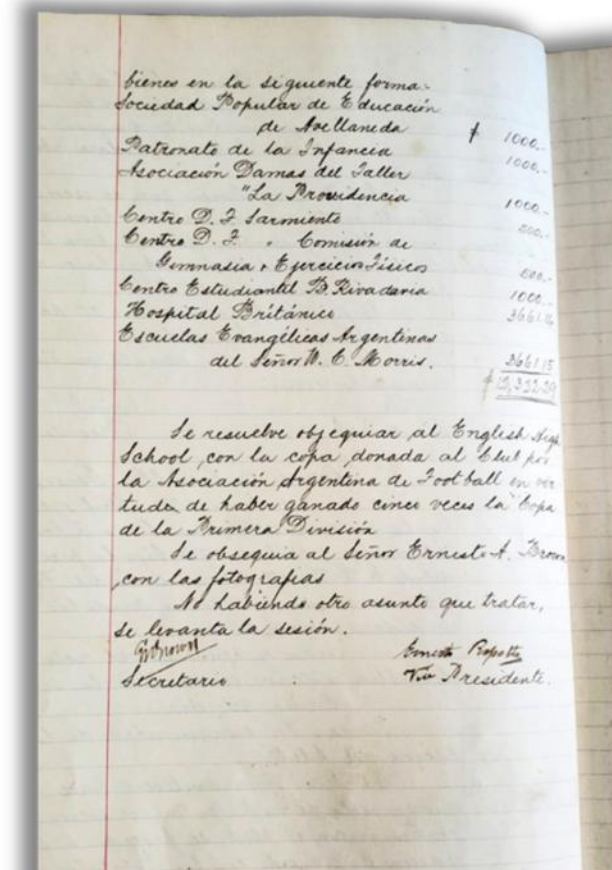 bienes en la siguiente forma.
Sociedad Popular de Educación
de Avellaneda $ 1000.-
Patronato de la Infancia 1000.-
Asociación Damas del Taller
"La Providencia 1000.-
Centro D. F. Sarmiento 500.-
Centro D. F. " Comisión de
Gimnasia y Ejercicios Físicos 500.-
Centro Estudiantil B. Rivadavia 1000.-
Hospital Británico 3661.14
Escuelas Evangélicas Argentinas
del Señor W. C. Morris. 3661.15
$ 12,322.29
Se resuelve obsequiar al English High
School, con la copa donada al Club por
la Asociación Argentina de Football en vir
tude de haber ganado cinco veces la "Copa
de la Primera División
Se obsequia al Señor Ernesto A. Brown
con las fotografias
No habiendo otro asunto que tratar,
se levanta la sesión.
Brown Ernesto
Secretario Vice Presidente.